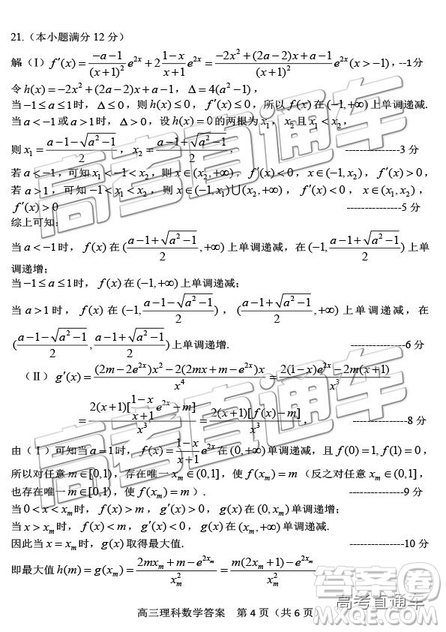 21.（本小题满分 12 分）
解（Ⅰ）f′(x) = \frac{-a-1}{(x+1)^2}e^{2x} + 2\frac{1-x}{x+1}e^{2x} = \frac{-2x^2+(2a-2)x+a-1}{(x+1)^2}e^{2x}(x>-1), --1分
令 h(x) = -2x^2+(2a-2)x+a-1, Δ = 4(a^2-1),
当 -1≤a≤1 时, Δ≤0, 则 h(x)≤0, f′(x)≤0, 所以 f(x) 在 (-1,+∞) 上单调递减.
当 a<-1 或 a>1 时, Δ>0, 设 h(x)=0 的两根为 x_1, x_2 且 x_1<x_2,
则 x_1 = \frac{a-1-\sqrt{a^2-1}}{2}, x_2 = \frac{a-1+\sqrt{a^2-1}}{2}, --------------3分
若 a<-1, 可知 x_1<-1<x_2, 则
若 a>1, 可知 -1<x_1<x_2, 则 x∈(-1,x_1)∪(x_2,+∞),
f′(x)>0 --------------5分
综上可知:
当 a<-1 时, f(x) 在 (\frac{a-1+\sqrt{a^2-1}}{2},+∞) 上单调递减, 在 (-1,\frac{a-1+\sqrt{a^2-1}}{2}) 上单
调递增;
当 -1≤a≤1 时, f(x) 在 (-1,+∞) 上单调递减;
当 a>1 时, f(x) 在 (-1,\frac{a-1-\sqrt{a^2-1}}{2}), (\frac{a-1+\sqrt{a^2-1}}{2},+∞) 上单调递减, 在
(\frac{a-1-\sqrt{a^2-1}}{2},\frac{a-1+\sqrt{a^2-1}}{2}) 上单调递增. --------------6分
（Ⅱ）g′(x) = \frac{(2m-2e^{2x})x^2-2(2mx+m-e^{2x})x}{x^4} = \frac{2(1-x)e^{2x}-2m(x+1)}{x^3}
= \frac{2(x+1)[\frac{1-x}{x+1}e^{2x}-m]}{x^3} = \frac{2(x+1)[f(x)-m]}{x^3}, --------------8分
由（Ⅰ）可知当 a=1 时, f(x) = \frac{1-x}{x+1}e^{2x} 在 (0,+∞) 上单调递减,
所以对任意 m∈[0,1), 存在唯一 x_m∈(0,1], 使 f(x_m)=m（反之对任意 x_m∈(0,1],
也存在唯一 m∈[0,1), 使 f(x_m)=m）. --------------9分
当 0<x<x_m 时, f(x)>m, g′(x)>0, g(x) 单调递增;
当 x>x_m 时, f(x)<m, g′(x)<0, g(x) 单调递减.
因此当 x=x_m 时, g(x) 取得最大值. --------------10分
即最大值 h(m) = g(x_m) = \frac{2mx_m+m-e^{2x_m}}{x_m^2} = \frac{m(2x_m+1)-e^{2x_m}}{x_m^2}
高三理科数学答案 第 4 页（共 6 页）
高考直通车
高考直通车
高考直通车
答案圈